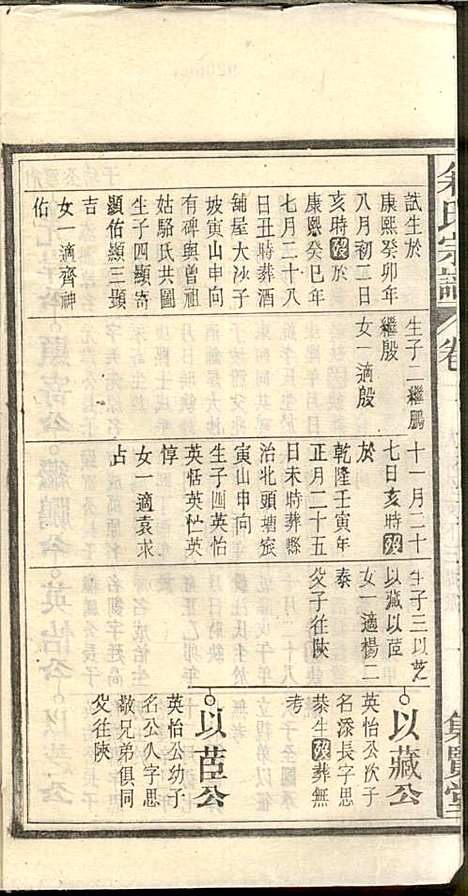 余氏宗譜
卷
集賢堂
試生於
康熙癸卯年
八月初二日
亥時歿於
康熙癸巳年
七月二十八
日丑時葬酒
舖屋大沙子
坡寅山申向
有碑與曾祖
姑駱氏共圖
生子四顯寄
顯佑顯三顯
吉
女一適齊神
佑
生子二繼鵬
繼殷
女一適殷
十一月二十
七日亥時歿
於
乾隆壬寅年
正月二十五
日未時葬縣
治北頭塘蜜
寅山申向
生子四英怡
英恬英仁英
惇
女一適袁求
占
生子三以芝
以藏以茝
女一適楊二
泰
父子往陝
以藏公
英怡公次子
名添長字思
恭生歿葬無
考
以茝公
英怡公幼子
名公久字思
敬兄弟俱同
父往陝